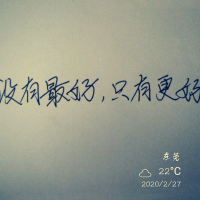 没有最好，只有更好
东莞
22°C
2020/2/27